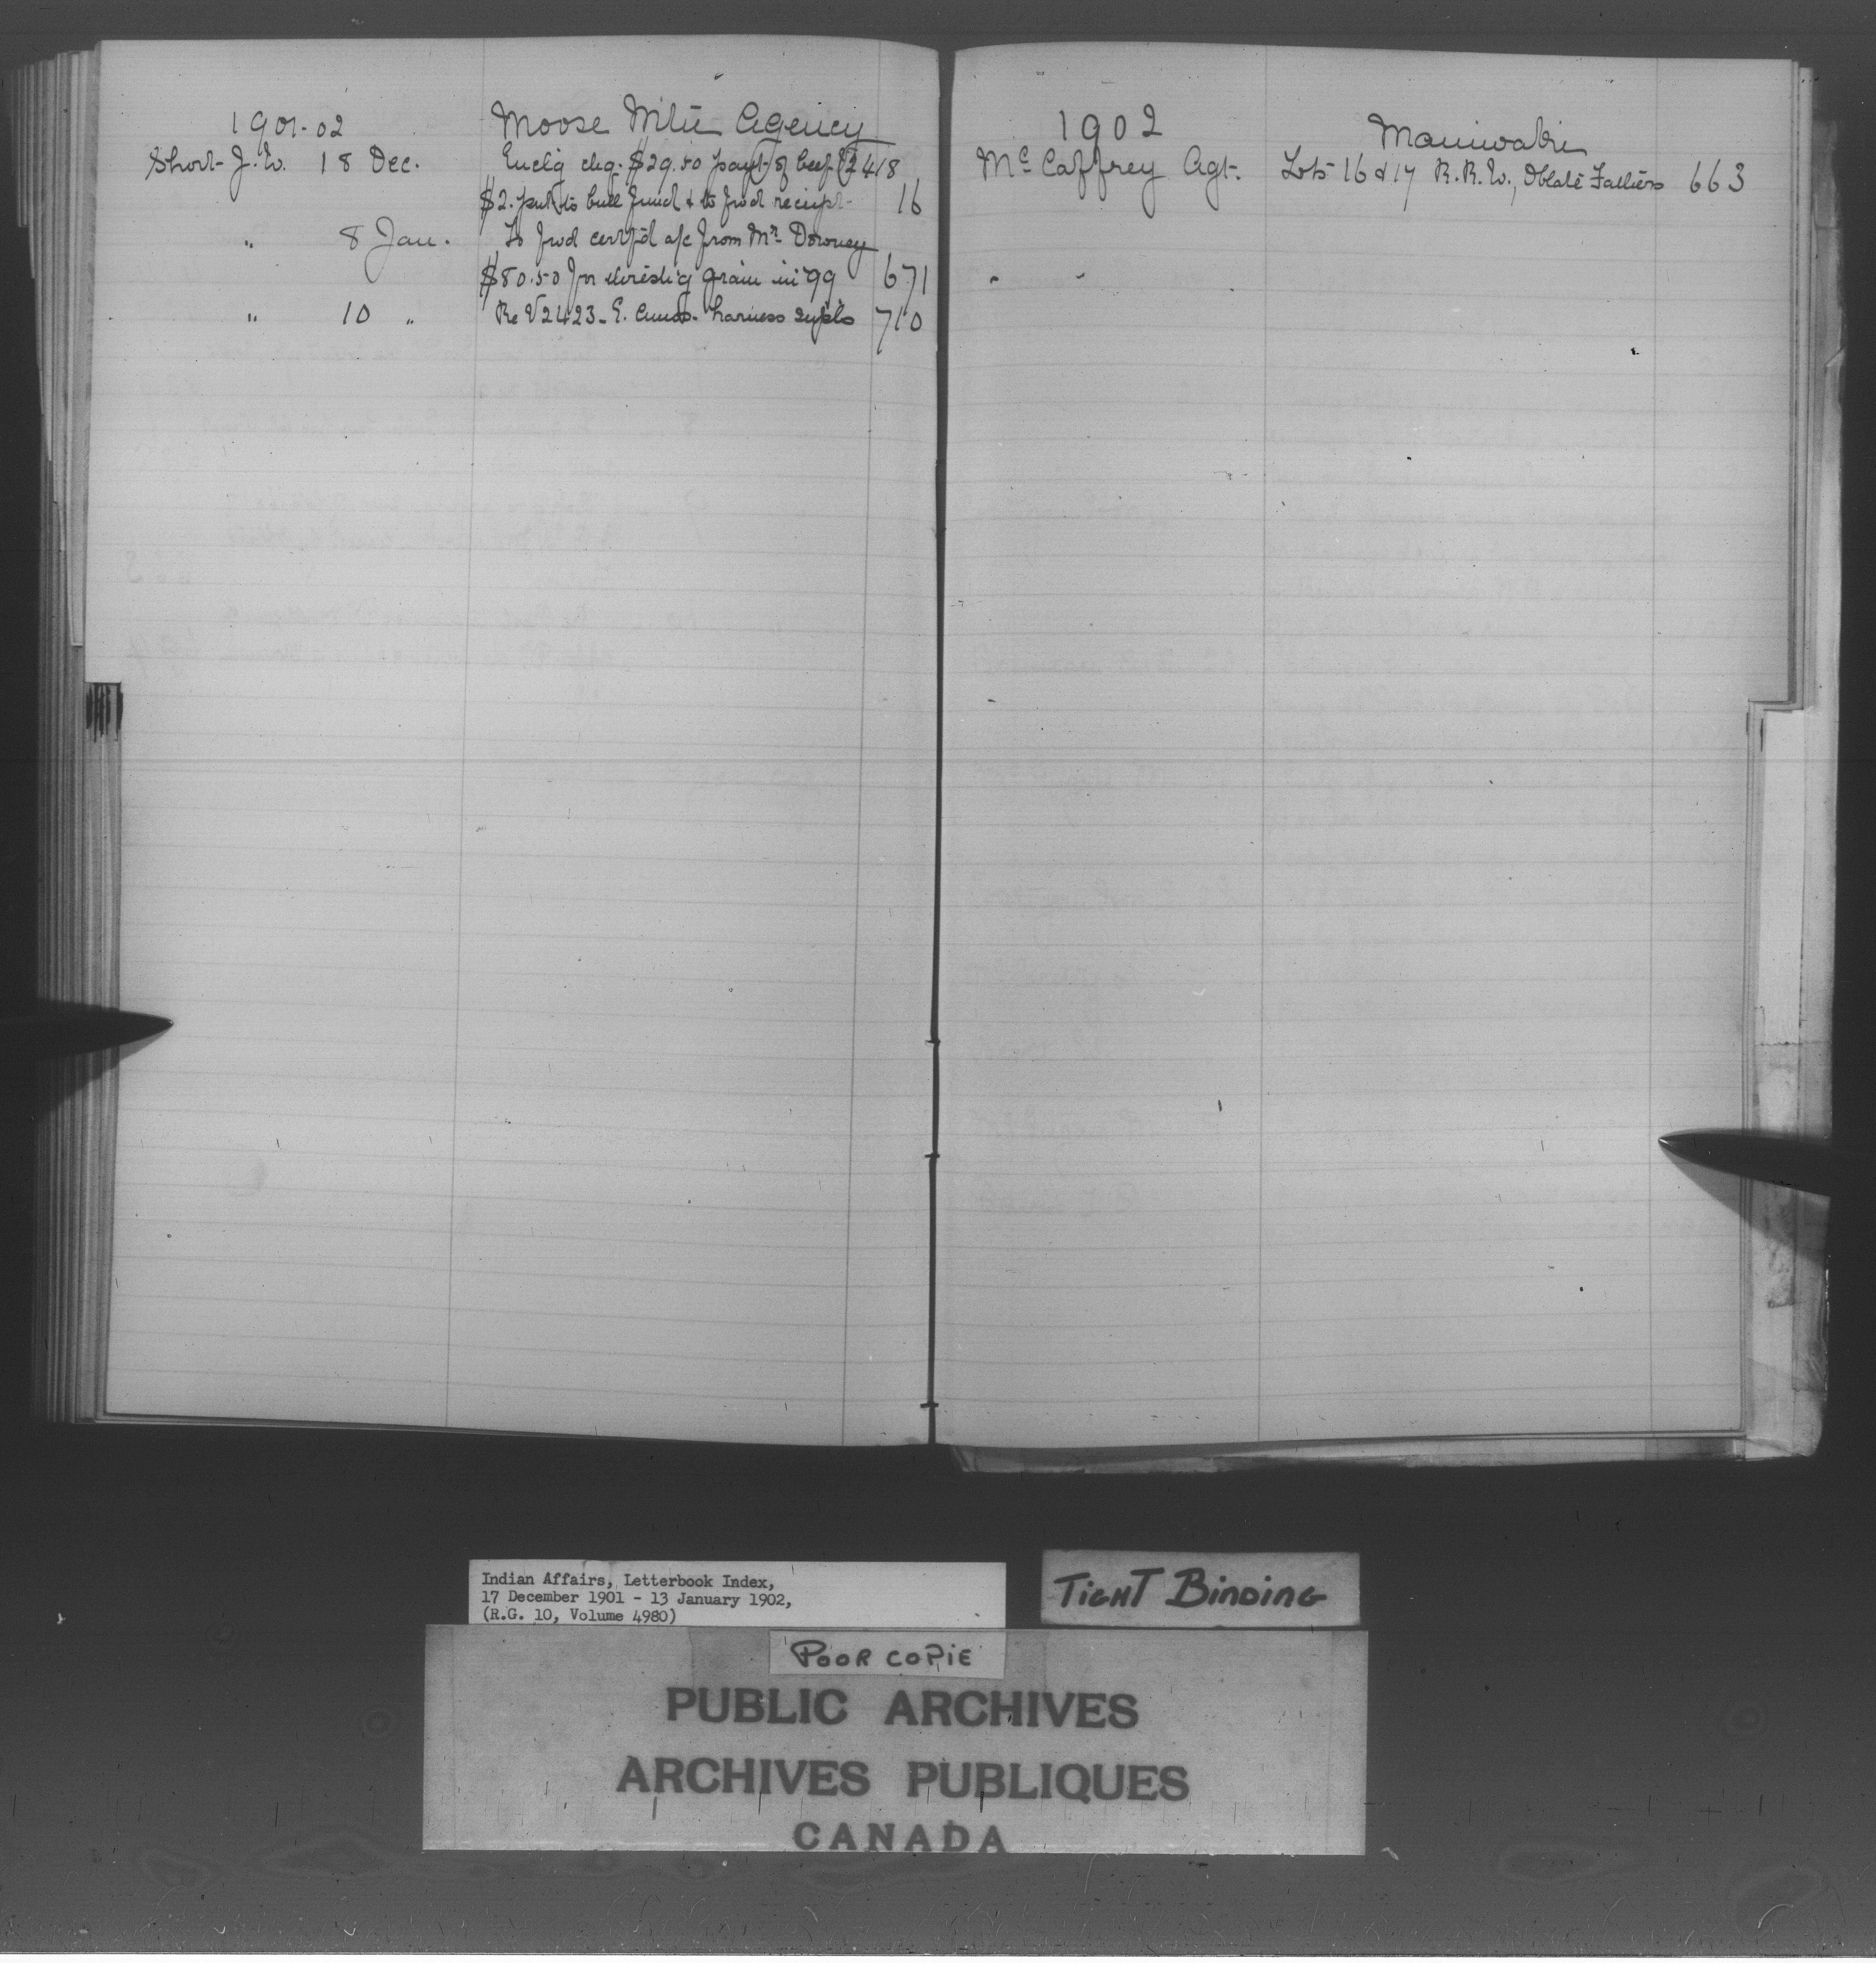 1901-02 Moose Mtn Agency
Short J. W. 18 Dec. Encl'g chq. $29.50 paym't of beef 2418
$2. paym't to bull fund & to fwd receipt 16
" 8 Jan. To fwd certf'd a/c from Mr. Downey
$80.50 for thresh'g grain in '99 671
" 10 " Re V2423 - E. harness suppl's 710
1902 Maniwaki
McCaffrey Agt. Lots 16 & 17 R.R.W., Oblate Fathers 663
Indian Affairs, Letterbook Index,
17 December 1901 - 13 January 1902,
(R.G. 10, Volume 4980)
TIGHT BINDING
POOR COPIE
PUBLIC ARCHIVES
ARCHIVES PUBLIQUES
CANADA